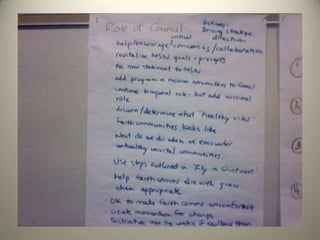 Role of Council
Driving strategic
direction
help/encourage concensus/collaboration
revitalize MSN goals - precepts
tie new statement to MSN
add program & mission committees to Council
continue temporal role - but add missional
role
discern/determine what "healthy vital"
faith communities looks like
what do we do when we encounter
unhealthy unvital communities.
Use steps outlined in "Fly in Ointment"
help faith comms die with grace
when appropriate
OK to make faith comms uncomfortable
create momentum for change
1
2
3
4